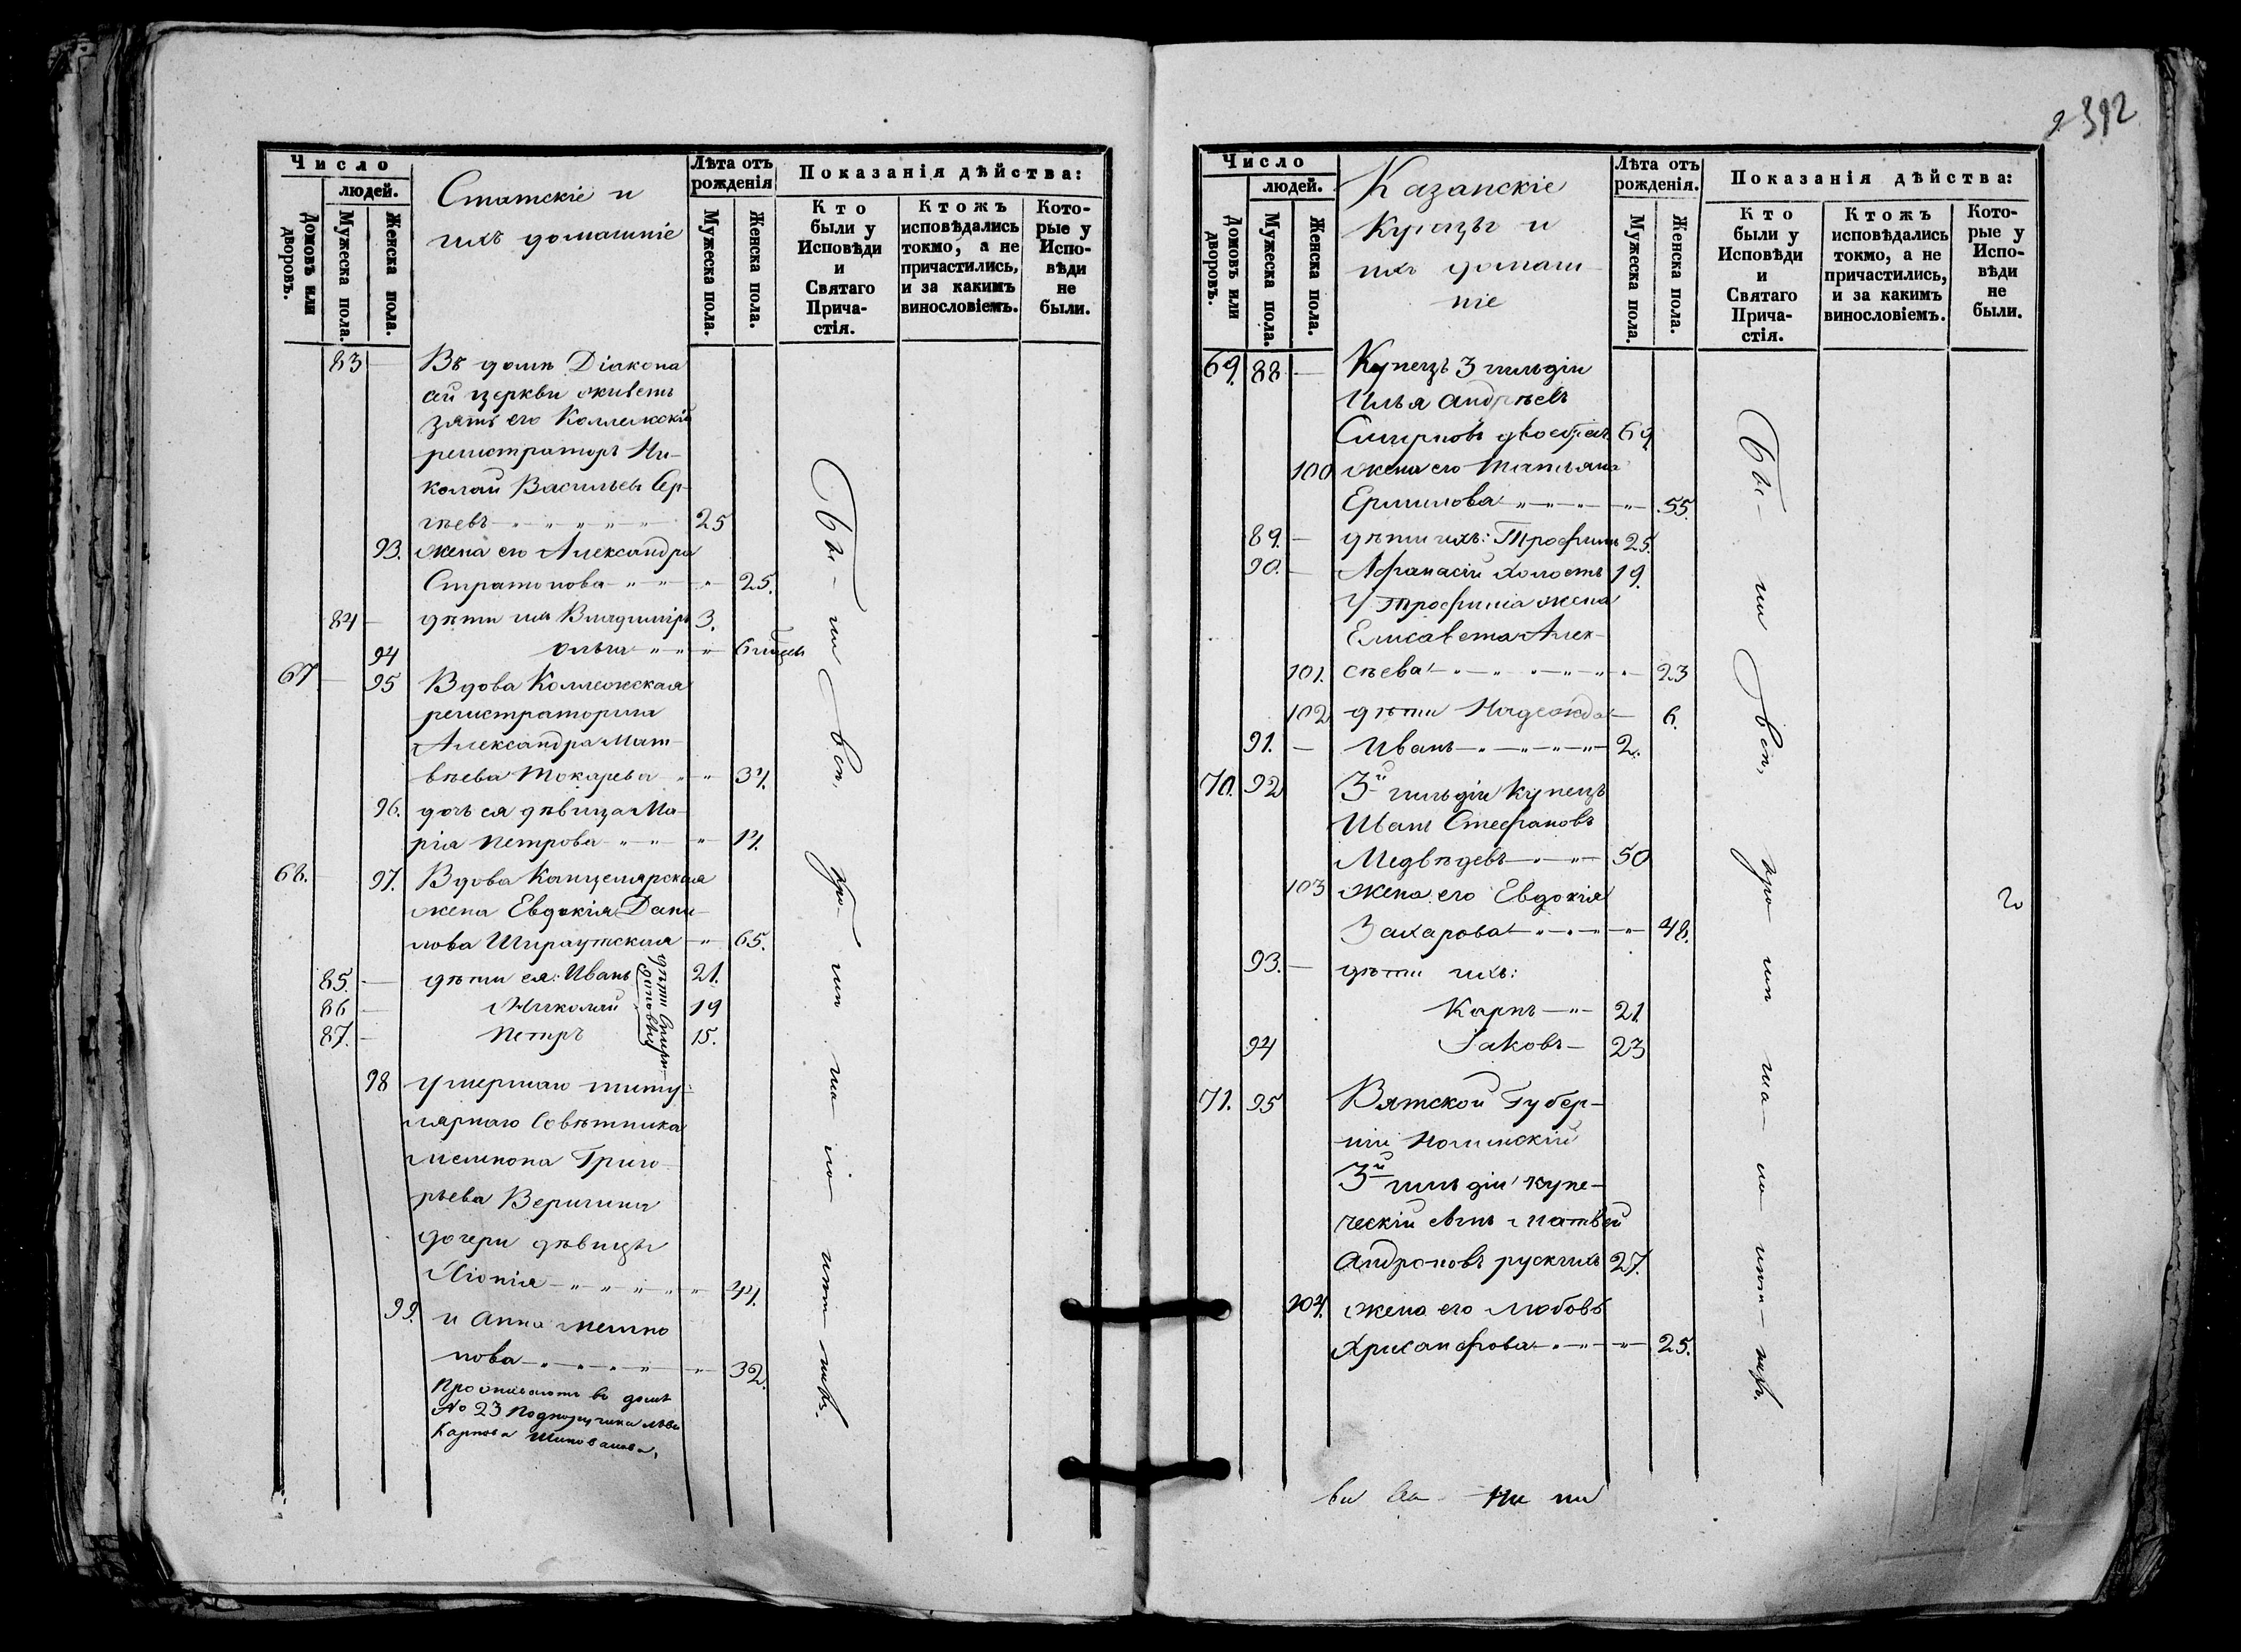 312
Число
людей.
Домовъ или дворовъ.
Мужеска пола.
Женска пола.
Статскіе и
ихъ домашніе
Лѣта отъ рожденія
Мужеска пола.
Женска пола.
Показанія дѣйства:
Кто были у Исповѣди и Святаго Прича-стія.
Ктожъ исповѣдались токмо, а не причастились, и за какимъ винословіемъ.
Кото-рые у Испо-вѣди не были.
83 — Въ домѣ Діакона
сей церкви живетъ
зять его Коллежскій
регистраторъ Ни-
колай Васильевъ Сер-
гѣевъ 25
93. жена его Александра
Стратонова 25.
84 — дѣти ихъ Владиміръ 3.
94 Ольга
67. — 95 Вдова Коллежская
регистраторша
Александра Мат-
вѣева Токарева 34.
96. дочь ея дѣвица Ма-
рія Петрова 14.
68. 97. Вдова Канцелярская
жена Евдокія Дани-
лова 65.
85. — дѣти ея: Иванъ 21.
86 — Николай 19
87. — Петръ 15.
98 умершаго титу-
лярнаго Совѣтника
Григо-
рьева Веригина
дочери дѣвицы
Хіонія 44.
99. и Анна
нова 32.
Проживаютъ въ домѣ
№ 23 Подпоручика
Карпова
Бы- ли всѣ,
Число
людей.
Домовъ или дворовъ.
Мужеска пола.
Женска пола.
Казанскіе
Купцы и
ихъ домаш-
ніе
Лѣта отъ рожденія.
Мужеска пола.
Женска пола.
Показанія дѣйства:
Кто были у Исповѣди и Святаго Прича-стія.
Ктожъ исповѣдались токмо, а не причастились, и за какимъ винословіемъ.
Кото-рые у Испо-вѣди не были.
69. 88 — Купецъ 3 гильдіи
Илья Андрѣевъ
Смирновъ 69
100 жена его Татьяна
Ермилова 55.
89. — дѣти ихъ: Трофимъ 25.
90. — Афанасій холостъ 19.
У Трофима жена
Елисавета Алек-
101. сѣева 23
102 дѣти Надежда 6.
91. — Иванъ 2.
70. 92 3й гильдіи Купецъ
Иванъ Стефановъ
Медвѣдевъ 50
103 жена его Евдокія
Захарова 48.
93. — дѣти ихъ:
Карпъ 21.
94 Іаковъ 23
71. 95 Вятской Губер-
ніи Нолинскій
3й гильдіи купе-
ческій сынъ Матвей
Андроновъ рускихъ 27.
104. жена его Любовь
Хрисанфова 25.
Бы- ли всѣ,